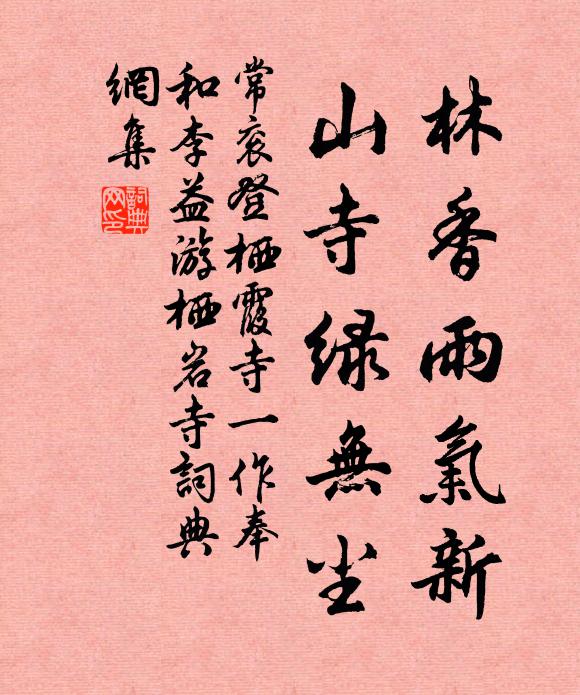 林香雨氣新
山寺緑無尘
常衮登栖霞寺一作奉
和李益游栖岩寺詞典
網集
詞典
网印